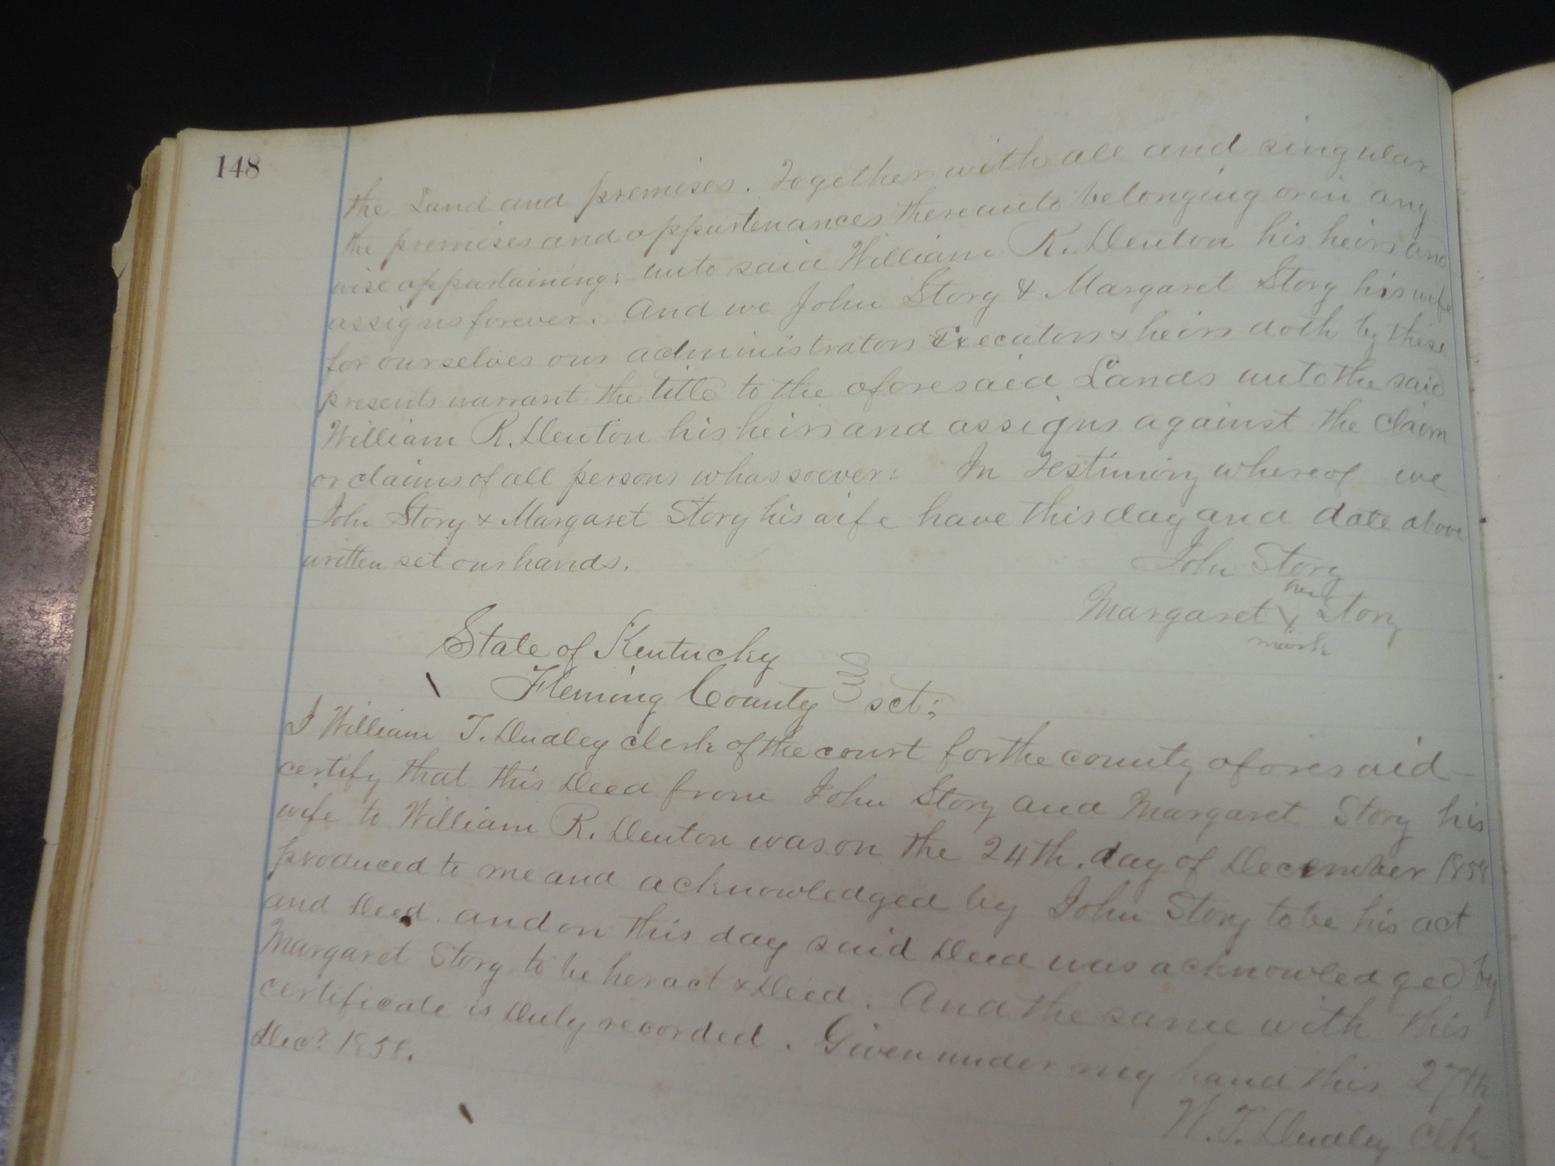 148
the Land and premises. Together with all and singular
the premises and appurtenances thereunto belonging or in any
wise appurtaining; unto said William R. Denton his heirs and
assigns forever. And we John Story & Margaret Story his wife
for ourselves our administrators Executors & heirs doth by these
presents warrant the title to the aforesaid Lands unto the said
William R. Denton his heirs and assigns against the claim
or claims of all persons whassoever: In Testimony whereof we
John Story & Margaret Story his wife have this day and date above
written set our hands.
John Story
her
Margaret X Story
mark
State of Kentucky
Fleming County } sct:
I William T. Dudley clerk of the court for the county aforesaid
certify that this Deed from John Story and Margaret Story his
wife to William R. Denton was on the 24th. day of December 1858
produced to me and acknowledged by John Story to be his act
and Deed. and on this day said Deed was acknowledged by
Margaret Story to be her act & Deed. And the same with this
certificate is Duly recorded. Given under my hand this 27th
Dec. 1858.
W. T. Dudley Clk